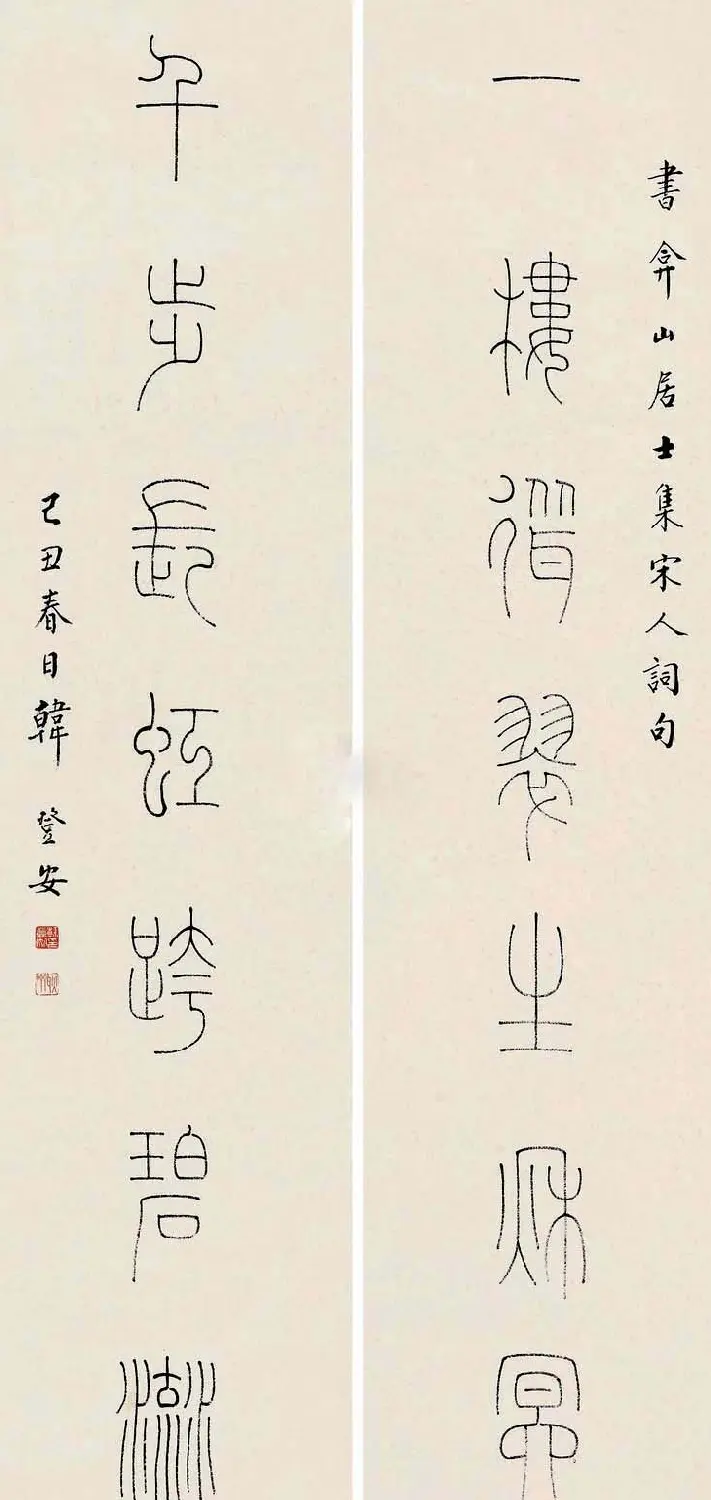 書弇山居士集宋人詞句
一樓翠生秋冥
千步長虹跨碧流
己丑春日韓登安